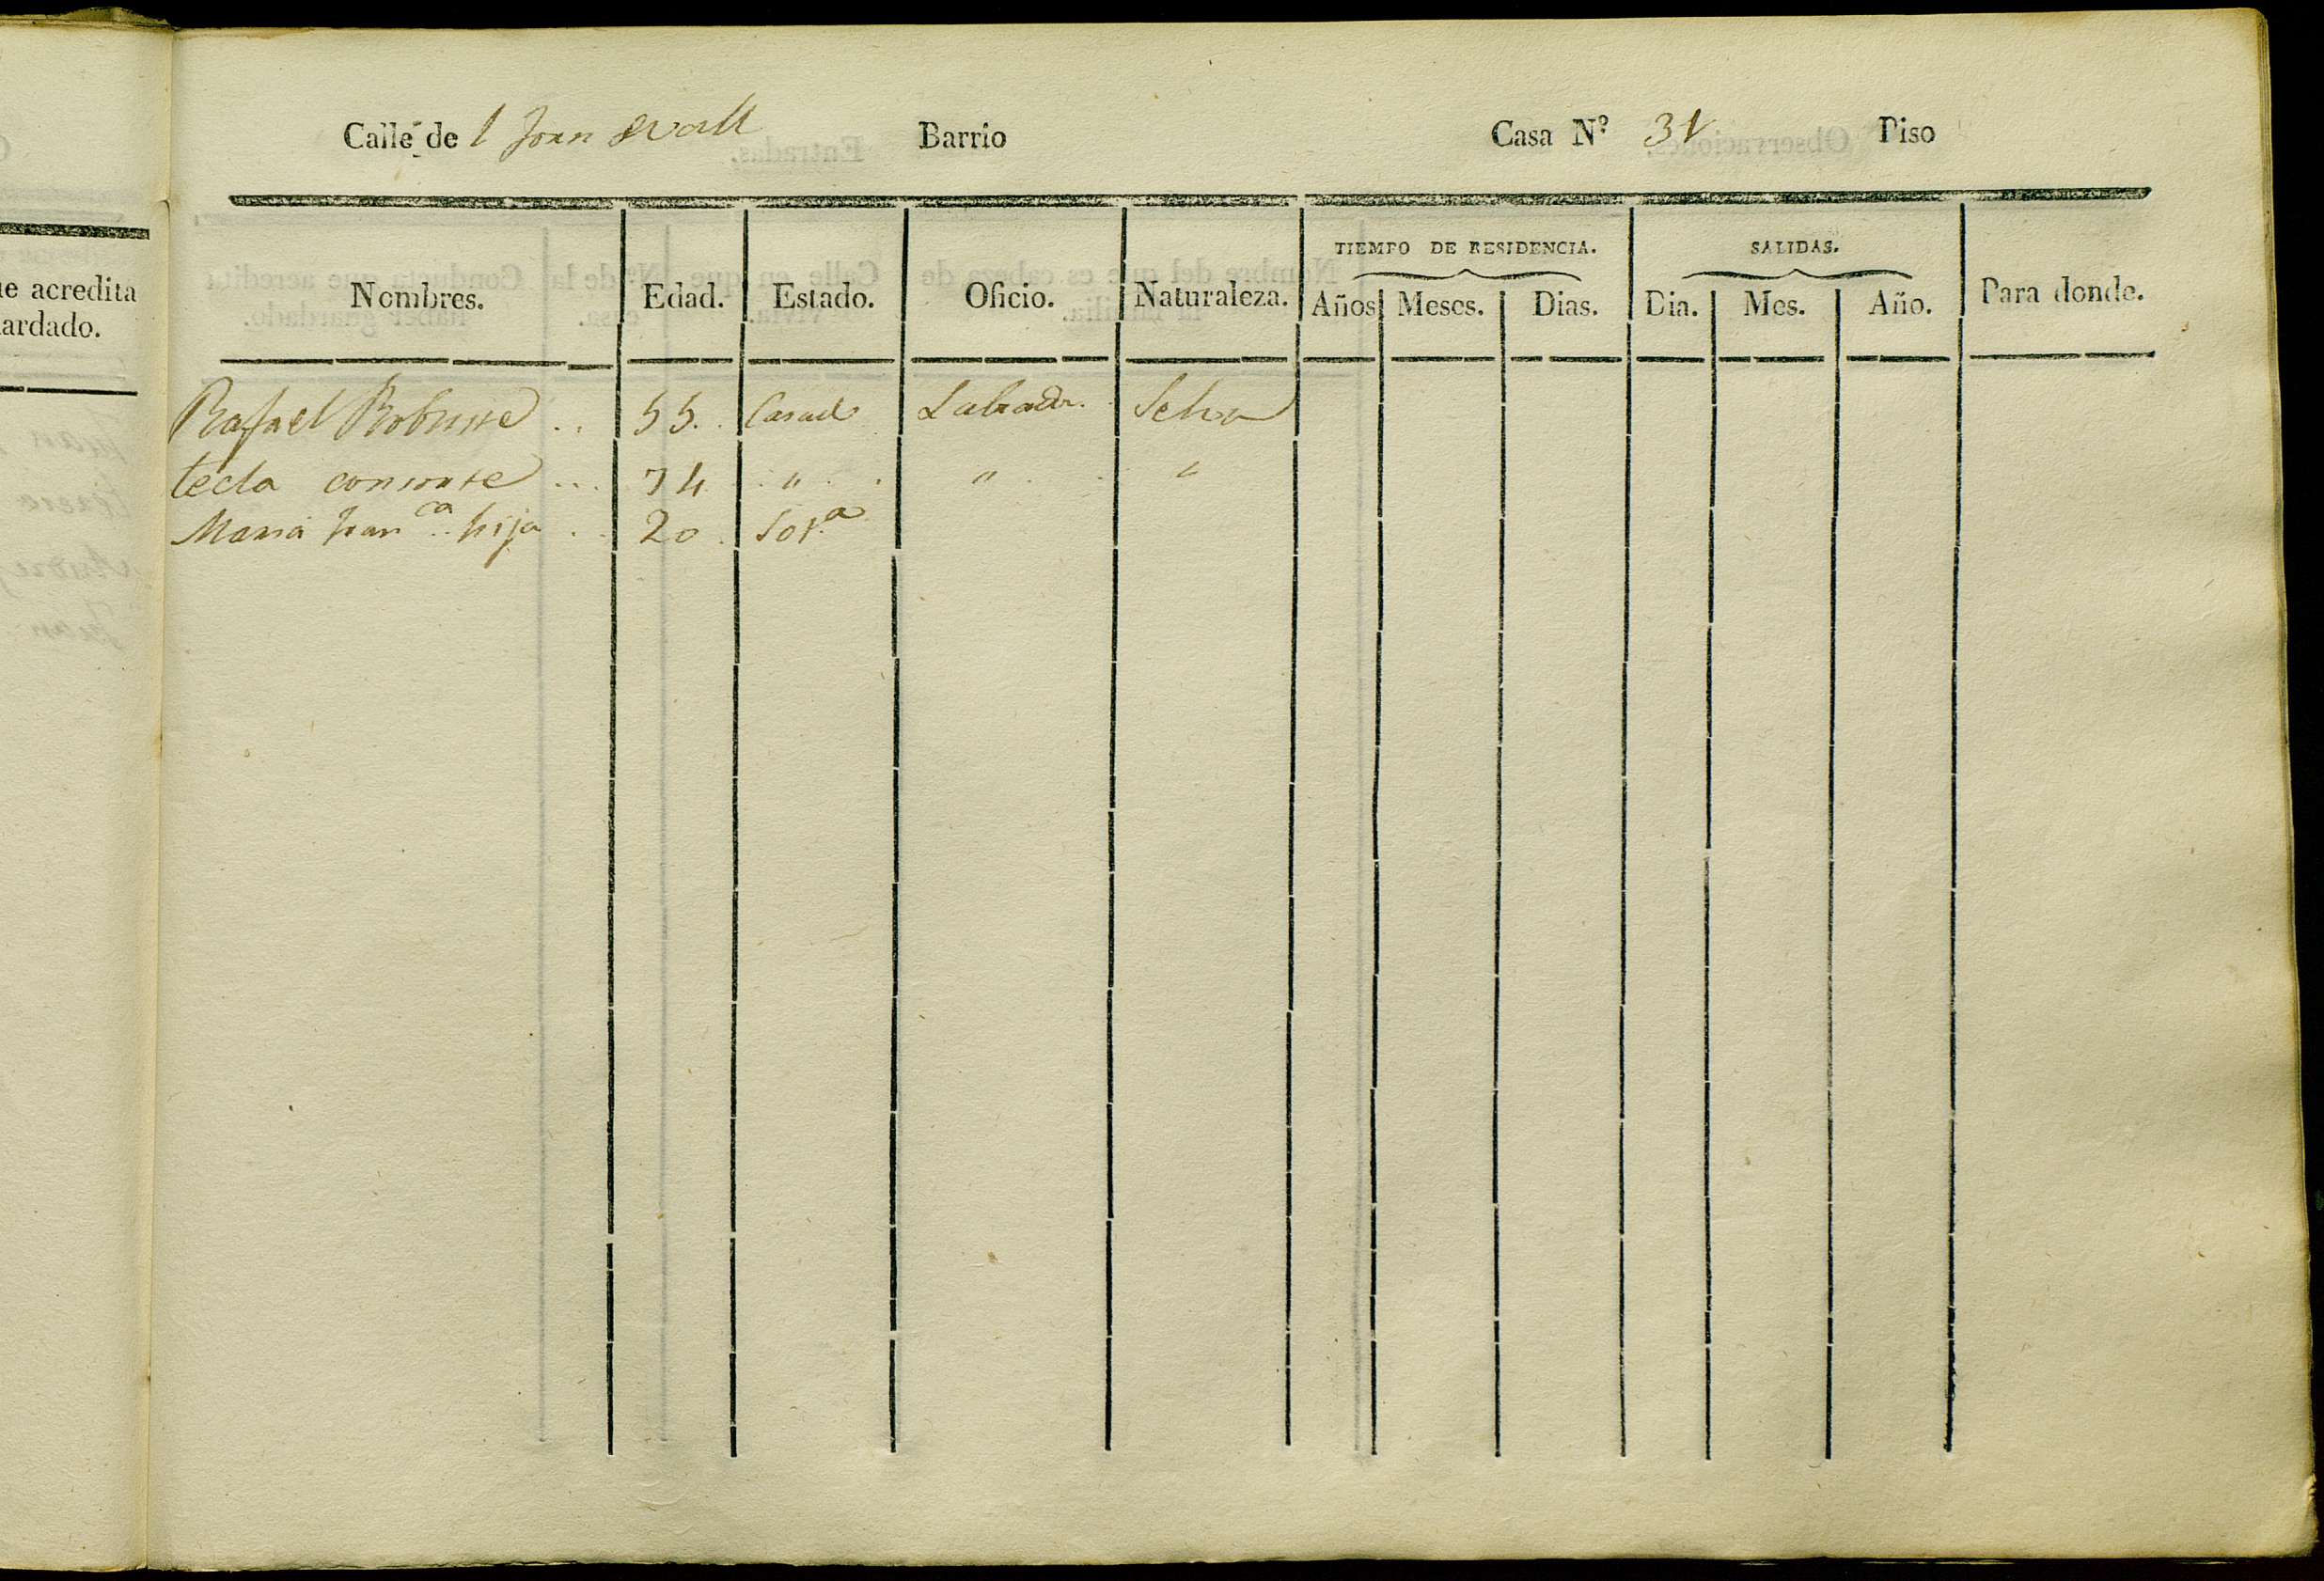 Calle de Joan Barrio Casa Nº 31 Piso
TIEMPO DE RESIDENCIA. SALIDAS.
Nombres. Edad. Estado. Oficio. Naturaleza. Años Meses. Dias. Dia. Mes. Año. Para donde.
Rafael .. 55. Casad Labrador. Selva
tecla consorte ... 74 " " "
Maria Franca hija . 20. Solª
e acredita
ardado.